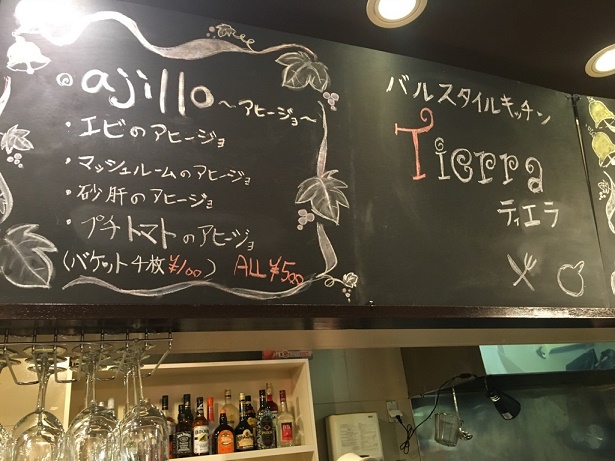 ◎ajillo 〜アヒージョ〜
・エビのアヒージョ
・マッシュルームのアヒージョ
・砂肝のアヒージョ
・プチトマトのアヒージョ
(バケット4枚¥100) ALL ¥500
バルスタイルキッチン
Tierra
ティエラ